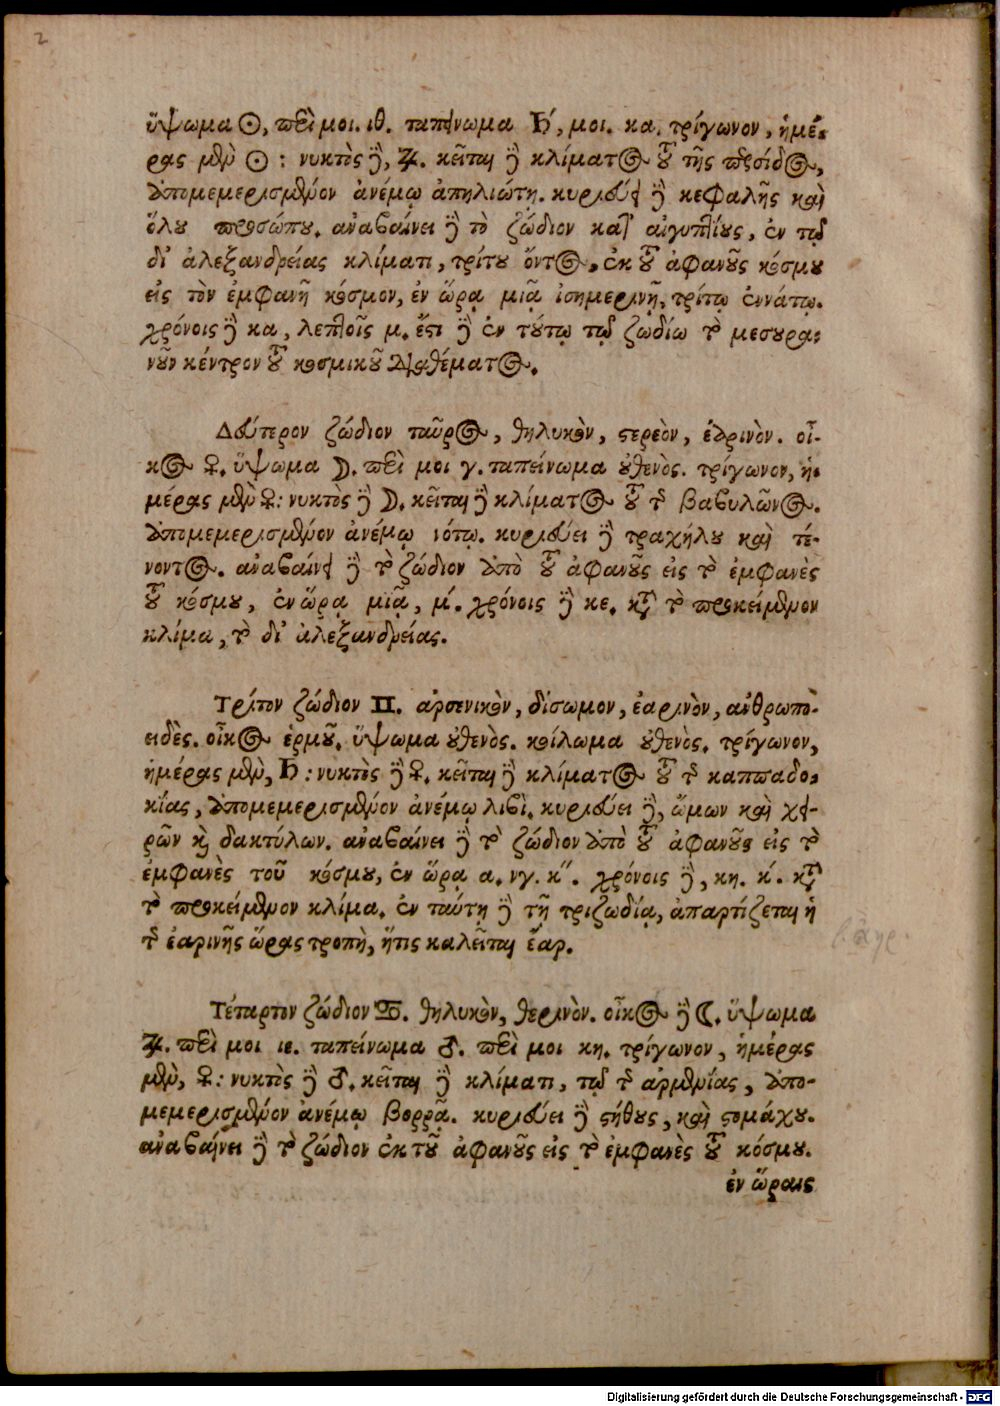 2
ὕψωμα ☉, περὶ μοι. ιθ. ταπείνωμα ♄, μοι. κα. τρίγωνον, ἡμέ-
ρας μὲν ☉ : νυκτὸς δὲ, ♃. κεῖται δὲ κλίματος τοῦ τῆς περσίδος,
ἀπομεμερισμένον ἀνέμῳ ἀπηλιώτῃ. κυριεύει δὲ κεφαλῆς καὶ
ὅλου προσώπου. ἀναβαίνει δὲ τὸ ζώδιον κατ' αἰγυπτίους, ἐν τῷ
δι' ἀλεξανδρείας κλίματι, τρίτου ὄντος, ἐκ τοῦ ἀφανοῦς κόσμου
εἰς τὸν ἐμφανῆ κόσμον, ἐν ὥρᾳ μιᾷ ἰσημερινῇ, τρίτῳ ἐννάτῳ.
χρόνοις δὲ κα, λεπτοῖς μ. ἔστι δὲ ἐν τούτῳ τῷ ζωδίω τὸ μεσουρα-
νοῦν κέντρον τοῦ κοσμικοῦ διαθέματος.
Δεύτερον ζώδιον ταῦρος, θηλυκὸν, στερεὸν, ἐαρινὸν. οἶ-
κος ♀. ὕψωμα ☽. περὶ μοι γ. ταπείνωμα οὐθενὸς. τρίγωνον, ἡ-
μέρας μὲν ♀: νυκτὸς δὲ ☽. κεῖται δὲ κλίματος τοῦ τῆς βαβυλῶνος.
ἀπομεμερισμένον ἀνέμῳ νότῳ. κυριεύει δὲ τραχήλου καὶ τέ-
νοντος. ἀναβαίνει δὲ τὸ ζώδιον ἀπὸ τοῦ ἀφανοῦς εἰς τὸ ἐμφανὲς
τοῦ κόσμου, ἐν ὥρᾳ μιᾷ, μ΄. χρόνοις δὲ κε. κατὰ τὸ προκείμενον
κλίμα, τὸ δι' ἀλεξανδρείας.
Τρίτον ζώδιον ♊. ἀρσενικὸν, δίσωμον, ἐαρινὸν, ἀνθρωπο-
ειδὲς. οἶκος ἑρμοῦ. ὕψωμα οὐθενὸς. κοίλωμα οὐθενὸς. τρίγωνον,
ἡμέρας μὲν, ♄ : νυκτὸς δὲ ♀. κεῖται δὲ κλίματος τοῦ τῆς καππαδο-
κίας, ἀπομεμερισμένον ἀνέμῳ λιβὶ. κυριεύει δὲ, ὤμων καὶ χει-
ρῶν καὶ δακτύλων. ἀναβαίνει δὲ τὸ ζώδιον ἀπὸ τοῦ ἀφανοῦς εἰς τὸ
ἐμφανὲς τοῦ κόσμου, ἐν ὥρᾳ α. νγ. κ´´. χρόνοις δὲ, κη. κ´. κατὰ
τὸ προκείμενον κλίμα. ἐν ταύτῃ δὲ τῇ τριζωδίᾳ, ἀπαρτίζεται ἡ
τῆς ἐαρινῆς ὥρας τροπὴ, ἥτις καλεῖται ἔαρ.
Τέταρτον ζώδιον ♋. θηλυκὸν, θερινὸν. οἶκος δὲ ☾. ὕψωμα
♃. περὶ μοι ιε. ταπείνωμα ♂. περὶ μοι κη. τρίγωνον, ἡμέρας
μὲν, ♀: νυκτὸς δὲ ♂. κεῖται δὲ κλίματι, τῷ τῆς ἀρμενίας, ἀπο-
μεμερισμένον ἀνέμῳ βορρᾷ. κυριεύει δὲ στήθους, καὶ στομάχου.
ἀναβαίνει δὲ τὸ ζώδιον ἐκ τοῦ ἀφανοῦς εἰς τὸ ἐμφανὲς τοῦ κόσμου.
ἐν ὥραις
Digitalisierung gefördert durch die Deutsche Forschungsgemeinschaft - DFG